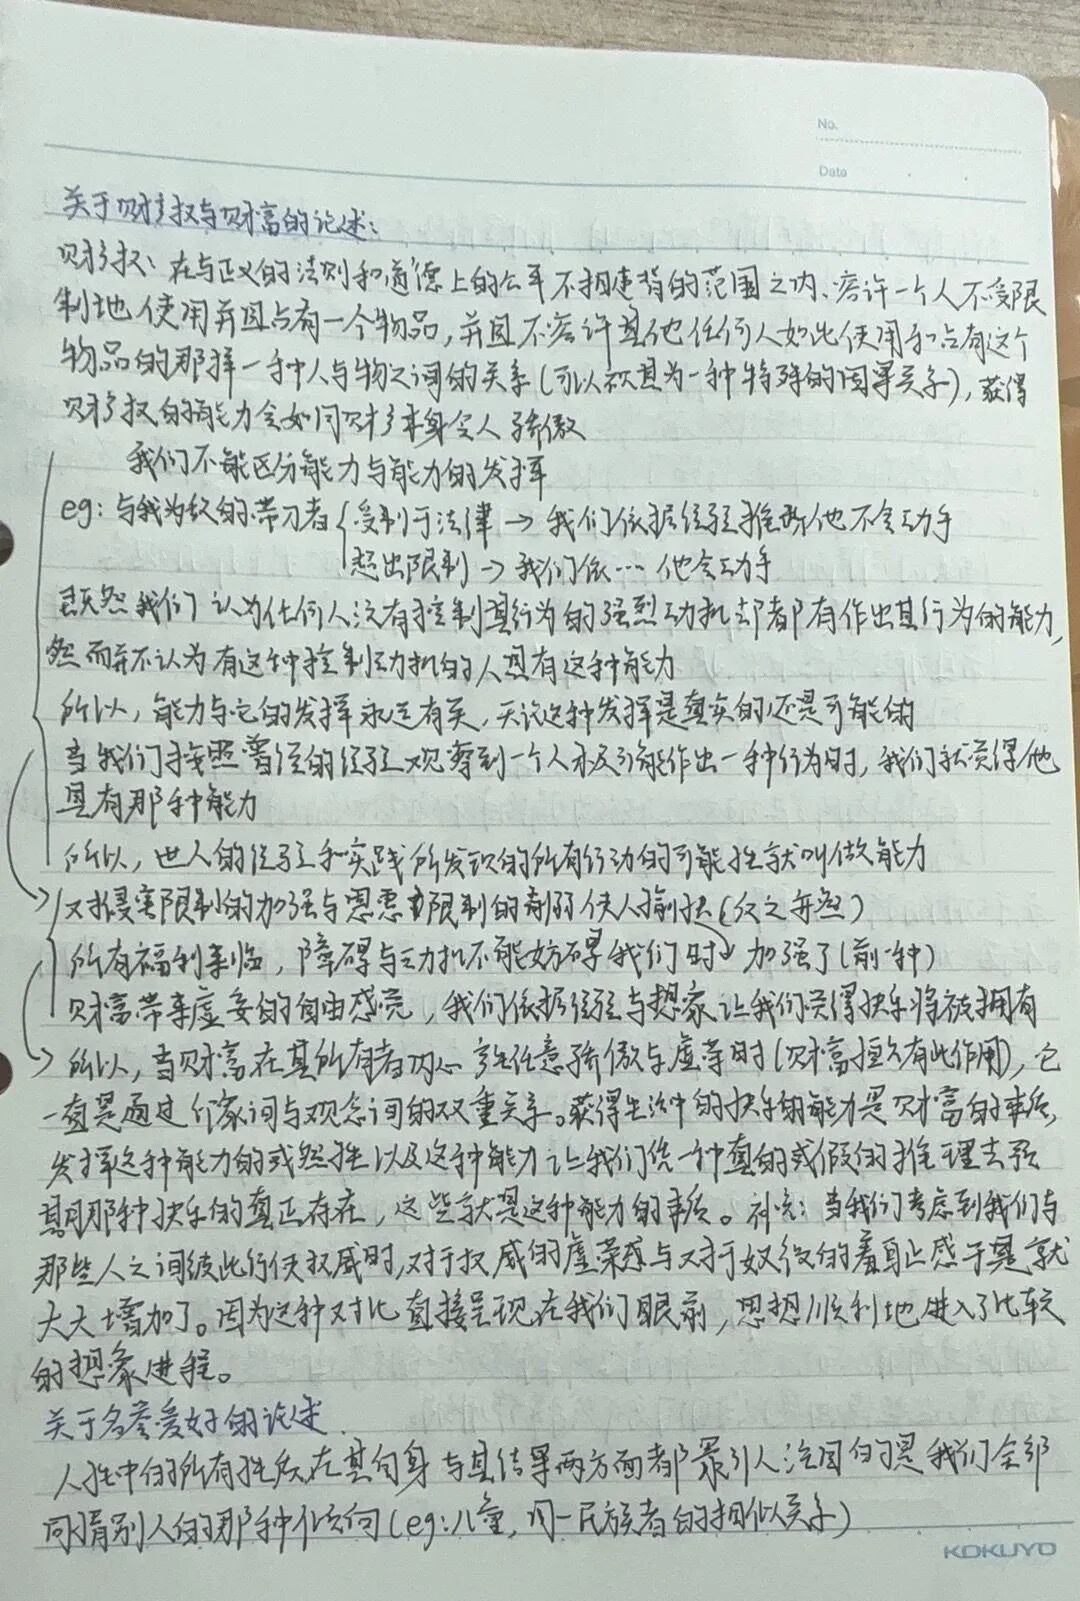 No.
Date
关于财产权与财富的论述：
财产权：在与正义的法则和道德上的公平不相违背的范围之内、容许一个人不受限
制地使用并且占有一个物品，并且不容许其他任何人如此使用和占有这个
物品的那样一种人与物之间的关系(可以视其为一种特殊的因果关系)，获得
财产权的能力会如同财产本身令人骄傲
我们不能区分能力与能力的发挥
eg：与我为敌的带刀者 受制于法律→我们依据经验推断他不会动手
超出限制→我们依…他会动手
既然我们认为任何人没有控制其行为的强烈动机却都有作出其行为的能力，
然而并不认为有这种控制动机的人具有这种能力
所以，能力与它的发挥永远有关，无论这种发挥是真实的还是可能的
当我们按照曾经的经验观察到一个人极可能作出一种行为时，我们就觉得他
具有那种能力
所以，世人的经验和实践所发现的所有行动的可能性就叫做能力
对侵害限制的加强与恩惠限制的削弱使人愉快(反之亦然)
所有福利来临，障碍与动机不能妨碍我们时 加强了(前一种)
财富带来虚妄的自由感觉，我们依据经验与想象让我们觉得快乐将被拥有
所以，当财富在其所有者内心产生任意骄傲与虚荣时(财富恒久有此作用)，它
一直是通过印象间与观念间的双重关系。获得生活中的快乐的能力是财富的本质，
发挥这种能力的或然性以及这种能力让我们凭一种真的或假的推理去预
期那种快乐的真正存在，这些就是这种能力的本质。补充：当我们考虑到我们与
那些人之间彼此行使权威时，对于权威的虚荣感与对于奴役的羞耻感于是就
大大增加了。因为这种对比直接呈现在我们眼前，思想顺利地进入了比较
的想象进程。
关于名誉爱好的论述
人性中的所有性质在其自身与其结果两方面都最引人注目的是我们全部
同情别人的那种倾向(eg：儿童，同一民族者的相似关系)
KOKUYO